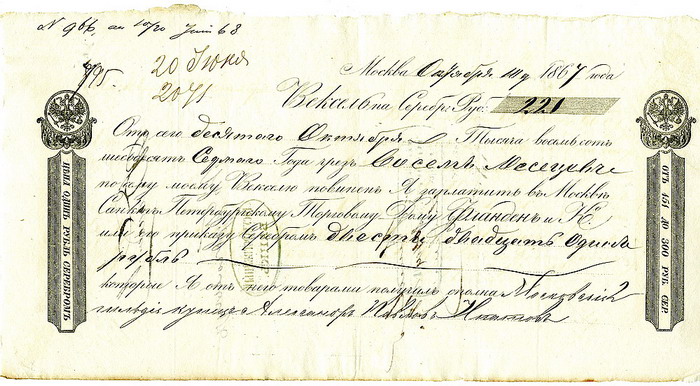 20 Июня
Москва Октября 10 д. 1867 года
Вексель на Серебр. Руб. 221
Отъ сего десятого Октября Тысяча восемьсотъ
шестьдесятъ Седмого Года чрезъ Восемь Месецовъ
по сему моему Векселю повиненъ Я заплатить въ Москвѣ
Санктъ Петербургскому Торговому Дому и Ко
или его приказу Серебромъ двести двадцать Одинъ
рубль
которыи Я отъ него товарами получилъ сполна Московскій 2
гильдіи купецъ Александръ
ЦѢНА ОДИНЪ РУБЛЬ СЕРЕБРОМЪ
ОТЪ 151 ДО 300 РУБ. СЕР.